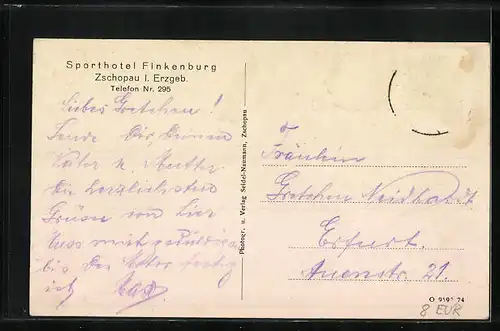 Sporthotel Finkenburg
Zschopau i. Erzgeb.
Telefon Nr. 295
Liebes Gretchen!
Sende Dir, Deinem
Vater u. Mutter
die herzlichsten
Grüsse von hier
Muss mich gedulden
bis der Motor fertig
ist
Photogr. u. Verlag Seidel-Naumann, Zschopau
Fräulein
Gretchen Neidhardt
Erfurt.
Auenstr. 21.
O 9191 74
8 EUR